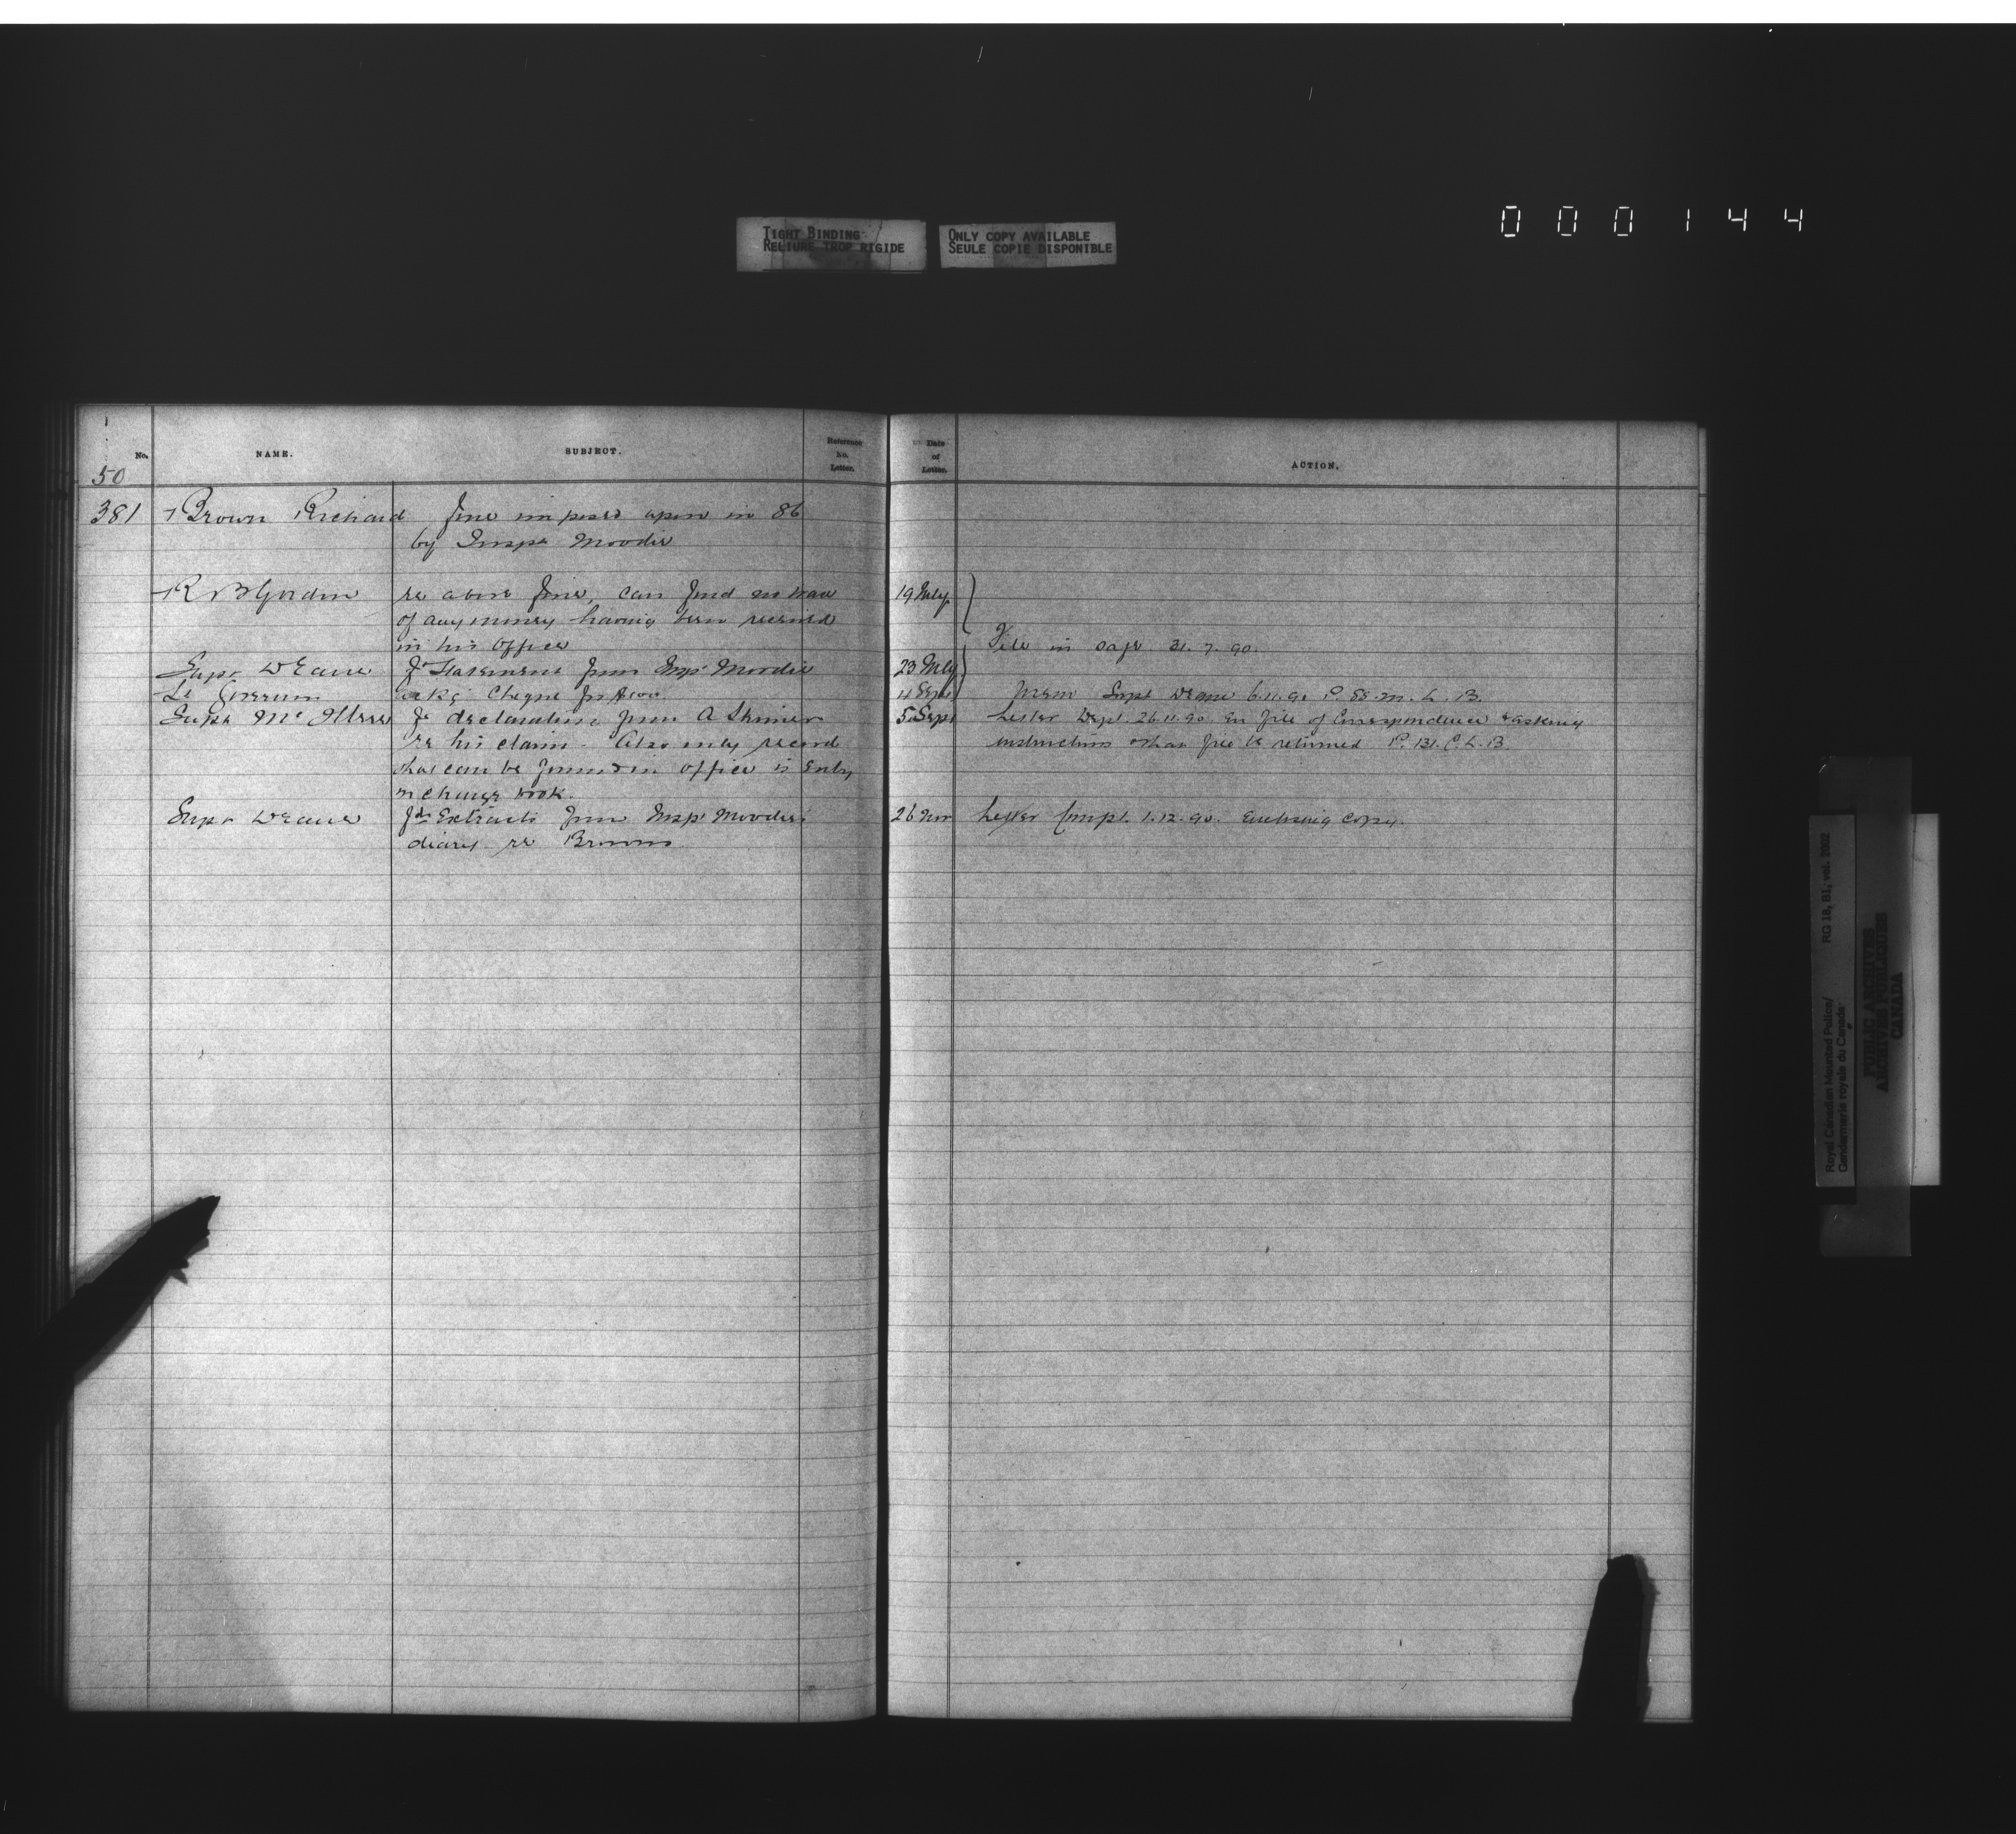 000144
TIGHT BINDING
RELIURE TROP RIGIDE
ONLY COPY AVAILABLE
SEULE COPIE DISPONIBLE
No.
NAME.
SUBJECT.
Reference No. Letter.
Date of Letter.
ACTION.
50
381 Brown Richard fine imposed upon in 86
by Inspr Moodie
R B Gordon re above fine, can find no trace 19 July
of any money having been received
in his office File in safe 21.7.90.
Supt Deane fd Statement from Insp Moodie 23 July
Lt Governor asks cheque for 4 Sept Mem Supt Deane 6.11.90 P. 88. M. L. B.
Supt McIllree fd declaration from A Skinner 5 Sept Letter Dept. 26.11.90 en file of Correspondence & asking
re his claim. Also only record instructions & that file be returned P. 131. C. L. B.
that can be found in office is Entry
in charge book.
Supt Deane fds Extracts from Insp Moodie's 26 Nov Letter Compt. 1.12.90. Enclosing copy.
diary re Brown
Royal Canadian Mounted Police/
Gendarmerie royale du Canada
RG 18, B1, vol. 2002
PUBLIC ARCHIVES
ARCHIVES PUBLIQUES
CANADA